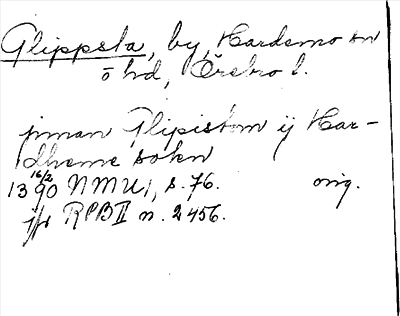 Glippsta, by, Hardemo sn
ö hd, Örebro l.
jnnan Glipistom ij Har-
dheme sokn
16/2
1390 NMU 1, s. 76. orig.
jfr RPB II n. 2456.